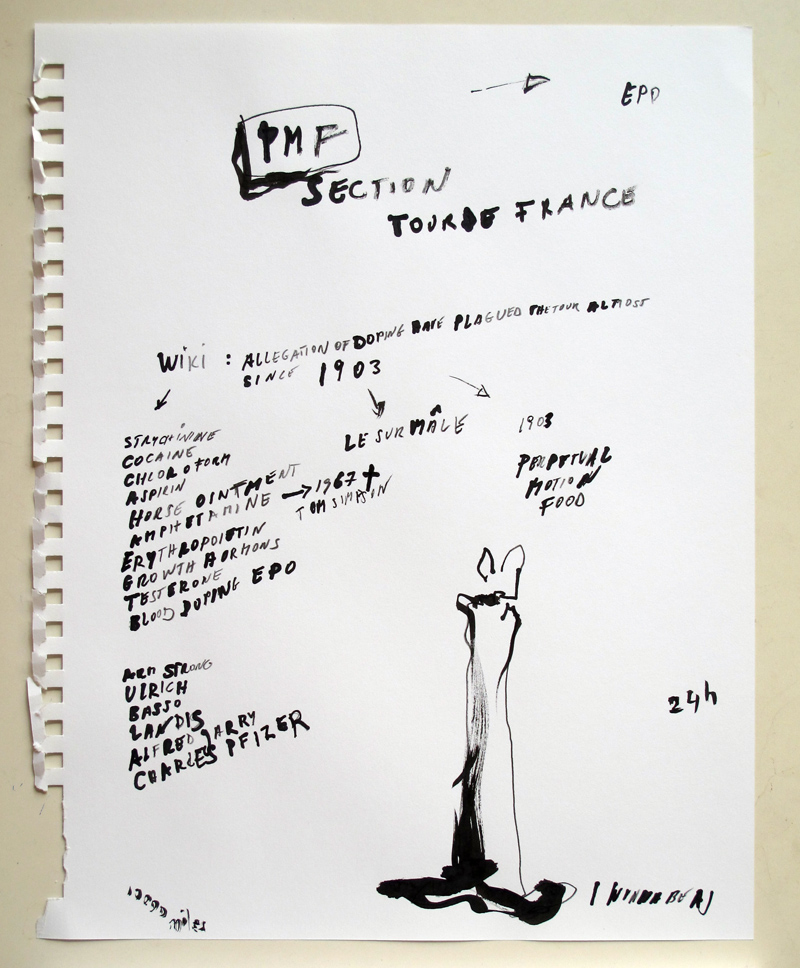 EPO
PMF
SECTION
TOUR DE FRANCE
WiKi : ALLEGATION OF DOPING HAVE PLAGUED THE TOUR ALMOST
SINCE 1903
STRYCHININE
COCAINE
CHLOROFORM
ASPIRIN
HORSE OINTMENT
AMPHETAMINE → 1967 ✝
TOM SIMPSON
ERYTHROPOIETIN
GROWTH HORMONS
TESTERONE
BLOOD DOPING EPO
LE SURMÂLE
1903
PERPETUAL
MOTION
FOOD
ARMSTRONG
ULRICH
BASSO
LANDIS
ALFRED JARRY
CHARLES PFIZER
24h